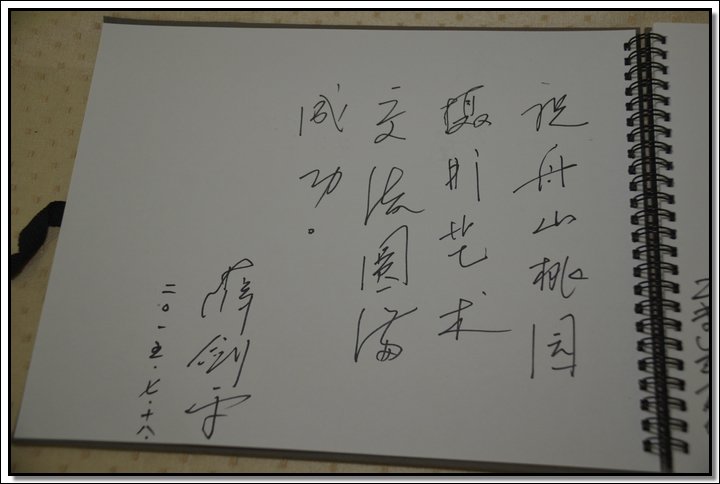 祝舟山桃园
摄影艺术
交流圆满
成功。
薛剑平
二〇一五.七.十八.